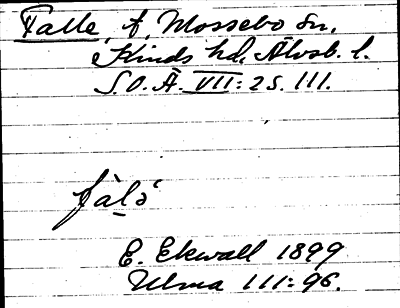 Falle, f, Mossebo sn,
Kinds hd, Älvsb. l.
S.O.Ä. VII: 2 s. 111.
fàlǝ́
E. Ekwall 1899
Ulma 111: 96.